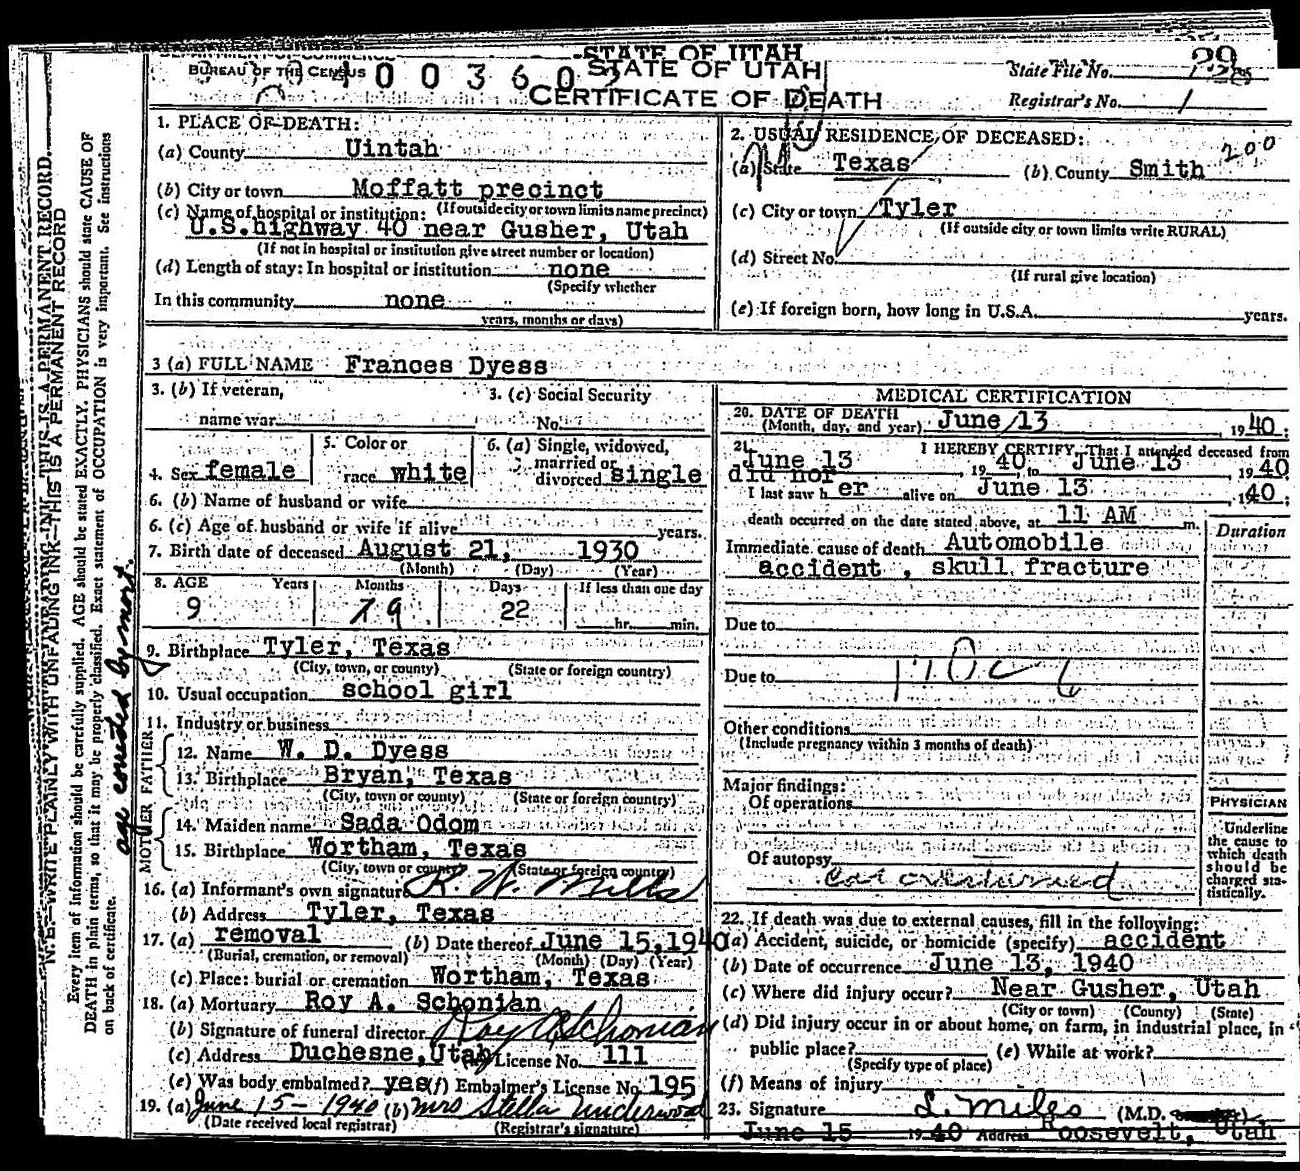 STATE OF UTAH
BUREAU OF THE CENSUS 0 0 3 6 0 STATE OF UTAH
CERTIFICATE OF DEATH
State File No.
Registrar's No. 1
1. PLACE OF DEATH:
(a) County Uintah
(b) City or town Moffatt precinct
(If outside city or town limits name precinct)
(c) Name of hospital or institution:
U.S.highway 40 near Gusher, Utah
(If not in hospital or institution give street number or location)
(d) Length of stay: In hospital or institution none
(Specify whether
In this community none
years, months or days)
2. USUAL RESIDENCE OF DECEASED:
200
(a) State Texas (b) County Smith
(c) City or town Tyler
(If outside city or town limits write RURAL)
(d) Street No.
(If rural give location)
(e) If foreign born, how long in U.S.A. years.
3 (a) FULL NAME Frances Dyess
3. (b) If veteran, 3. (c) Social Security
name war No.
4. Sex female 5. Color or race white 6. (a) Single, widowed, married or divorced single
6. (b) Name of husband or wife
6. (c) Age of husband or wife if alive years.
7. Birth date of deceased August 21, 1930
(Month) (Day) (Year)
8. AGE Years Months Days If less than one day
9 7 9 22 hr. min.
9. Birthplace Tyler, Texas
(City, town, or county) (State or foreign country)
10. Usual occupation school girl
11. Industry or business
FATHER
12. Name W. D. Dyess
13. Birthplace Bryan, Texas
(City, town or county) (State or foreign country)
MOTHER
14. Maiden name Sada Odom
15. Birthplace Wortham, Texas
(City, town or county) (State or foreign country)
16. (a) Informant's own signature R. W. Mills
(b) Address Tyler, Texas
17. (a) removal (b) Date thereof June 15, 1940
(Burial, cremation, or removal) (Month) (Day) (Year)
(c) Place: burial or cremation Wortham, Texas
18. (a) Mortuary Roy A. Schonian
(b) Signature of funeral director Roy A Schonian
(c) Address Duchesne, Utah License No. 111
(e) Was body embalmed? yes (f) Embalmer's License No. 195
19. (a) June 15 - 1940 (b) Mrs Stella Underwood
(Date received local registrar) (Registrar's signature)
MEDICAL CERTIFICATION
20. DATE OF DEATH
(Month, day, and year) June 13, 1940:
21. I HEREBY CERTIFY, That I attended deceased from
June 13 1940 to June 13 1940
did not
I last saw her alive on June 13 1940:
death occurred on the date stated above, at 11 AM m.
Duration
Immediate cause of death Automobile
accident , skull fracture
Due to
Due to
Other conditions
(Include pregnancy within 3 months of death)
Major findings:
Of operations
Of autopsy
car overturned
PHYSICIAN
Underline
the cause to
which death
should be
charged sta-
tistically.
22. If death was due to external causes, fill in the following:
(a) Accident, suicide, or homicide (specify) accident
(b) Date of occurrence June 13, 1940
(c) Where did injury occur? Near Gusher, Utah
(City or town) (County) (State)
(d) Did injury occur in or about home, on farm, in industrial place, in
public place? (e) While at work?
(Specify type of place)
(f) Means of injury
23. Signature L. Miles (M.D.
June 15 1940 Address Roosevelt, Utah
N. B.—WRITE PLAINLY WITH UNFADING INK—THIS IS A PERMANENT RECORD
Every item of information should be carefully supplied. AGE should be stated EXACTLY. PHYSICIANS should state CAUSE OF
DEATH in plain terms, so that it may be properly classified. Exact statement of OCCUPATION is very important. See instructions
on back of certificate.